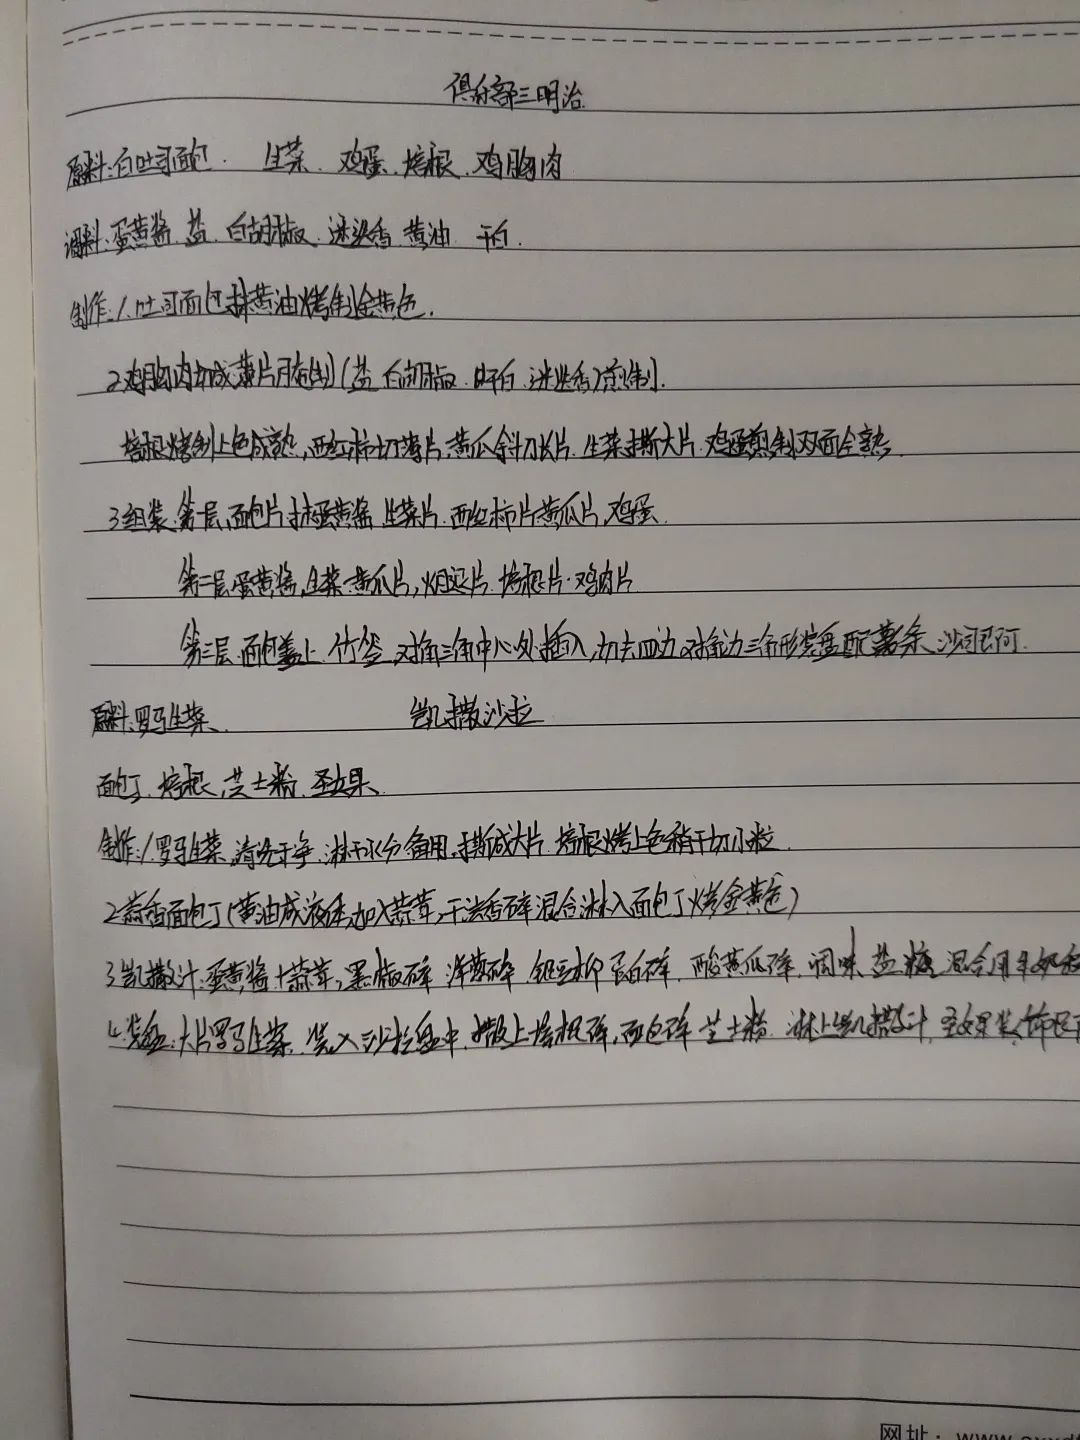 俱乐部三明治
原料:白吐司面包. 生菜. 鸡蛋. 培根. 鸡胸肉
调料:蛋黄酱. 盐. 白胡椒. 迷迭香 黄油 干白.
制作:1.吐司面包抹黄油烤制金黄色.
2鸡胸肉切成薄片腌制(盐 白胡椒. 干白 迷迭香)煎制.
培根烤制上色成熟,西红柿切薄片.黄瓜斜刀长片.生菜手撕大片.鸡蛋煎制双面全熟.
3组装.第一层,面包片抹蛋黄酱 生菜片.西红柿片黄瓜片,鸡蛋.
第二层蛋黄酱,生菜.黄瓜片,火腿片.培根片.鸡肉片
第三层.面包盖上.竹签.对角三角中心处插入,切去四边.对角切三角形装盘配薯条.沙司
原料:罗马生菜. 凯撒沙拉
面包丁.培根,芝士粉.圣女果.
制作:1.罗马生菜,清洗干净.淋干水分备用.手撕成大片.培根烤上色稍干切小粒.
2蒜香面包丁(黄油成液体,加入蒜茸,干法香碎混合淋入面包丁烤金黄色)
3凯撒汁:蛋黄酱+蒜茸,黑椒碎 洋葱碎.银鱼柳 蛋白碎.酸黄瓜碎.调味 盐 糖 混合用
4.装盘:大片罗马生菜.装入沙拉盘中.撒上培根碎,面包碎 芝士粉.淋上凯撒汁.圣女果装饰
网址:www.